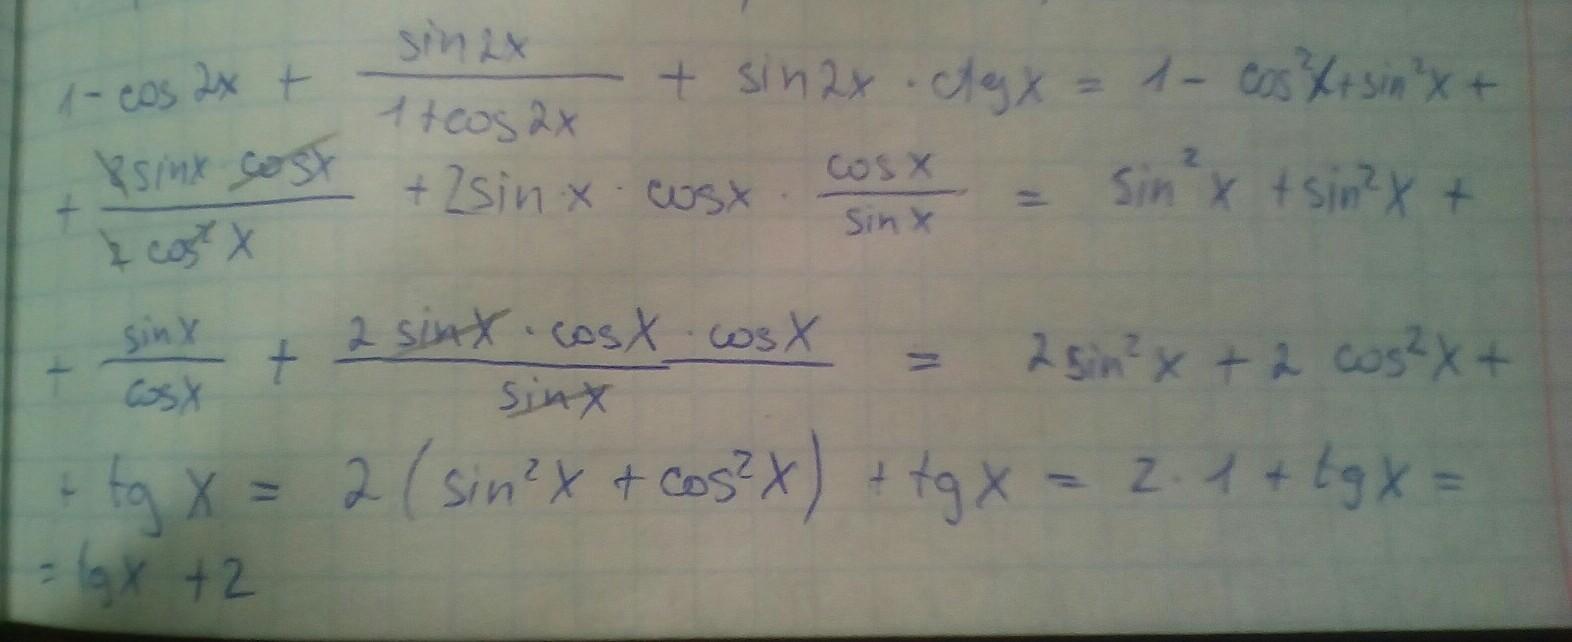 1 - cos 2x + sin 2x / 1 + cos 2x + sin 2x · ctg x = 1 - cos²x + sin²x +
+ 2 sin x cos x / 2 cos²x + 2 sin x · cos x · cos x / sin x = sin²x + sin²x +
+ sin x / cos x + 2 sin x · cos x · cos x / sin x = 2 sin²x + 2 cos²x +
+ tg x = 2 (sin²x + cos²x) + tg x = 2 · 1 + tg x =
= tg x + 2